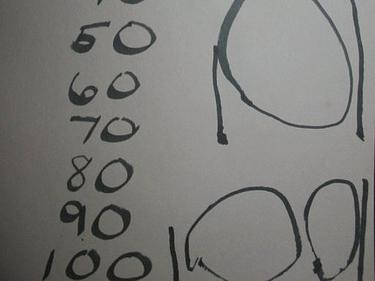 50
60
70
80
90
100